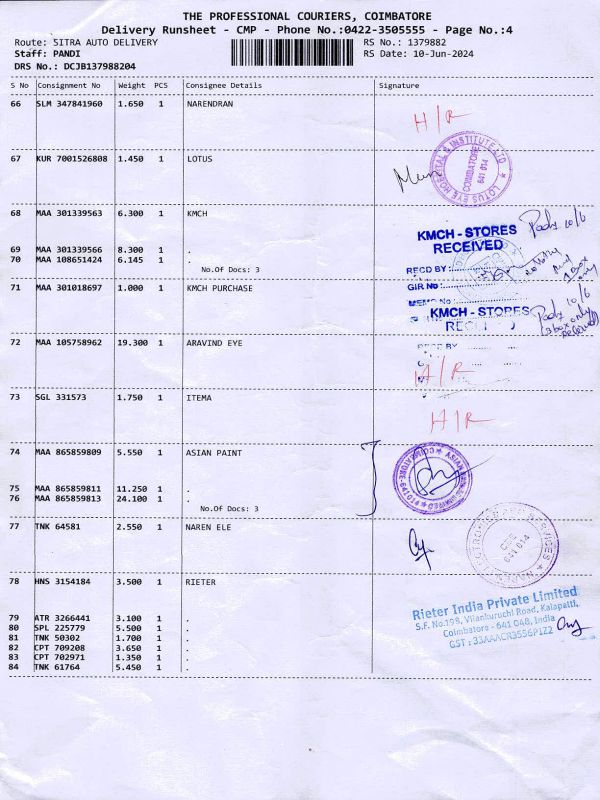 THE PROFESSIONAL COURIERS, COIMBATORE
Delivery Runsheet - CMP - Phone No.:0422-3505555 - Page No.:4
Route: SITRA AUTO DELIVERY
RS No.: 1379882
Staff: PANDI
RS Date: 10-Jun-2024
DRS No.: DCJB137988204
S No Consignment No Weight PCS Consignee Details Signature
66 SLM 347841960 1.650 1 NARENDRAN
H/R
67 KUR 7001526808 1.450 1 LOTUS
LOTUS EYE HOSPITAL & INSTITUTE LTD
COIMBATORE
641 014
68 MAA 301339563 6.300 1 KMCH
KMCH - STORES
RECEIVED
RECD BY:
GIR No:
MEMO No:
69 MAA 301339566 8.300 1 .
70 MAA 108651424 6.145 1 .
No.Of Docs: 3
71 MAA 301018697 1.000 1 KMCH PURCHASE
KMCH - STORES
RECD BY
72 MAA 105758962 19.300 1 ARAVIND EYE
H/R
73 SGL 331573 1.750 1 ITEMA
H/R
74 MAA 865859809 5.550 1 ASIAN PAINT
75 MAA 865859811 11.250 1 .
76 MAA 865859813 24.100 1 .
No.Of Docs: 3
77 TNK 64581 2.550 1 NAREN ELE
CBE
641 014
78 HNS 3154184 3.500 1 RIETER
Rieter India Private Limited
S.F. No.198, Vilankuruchi Road, Kalapatti,
Coimbatore - 641 048, India
GST : 33AAACR3556P1Z2
79 ATR 3266441 3.100 1 .
80 SPL 225779 5.500 1 .
81 TNK 50302 1.700 1 .
82 CPT 709208 3.650 1 .
83 CPT 702971 1.350 1 .
84 TNK 61764 5.450 1 .